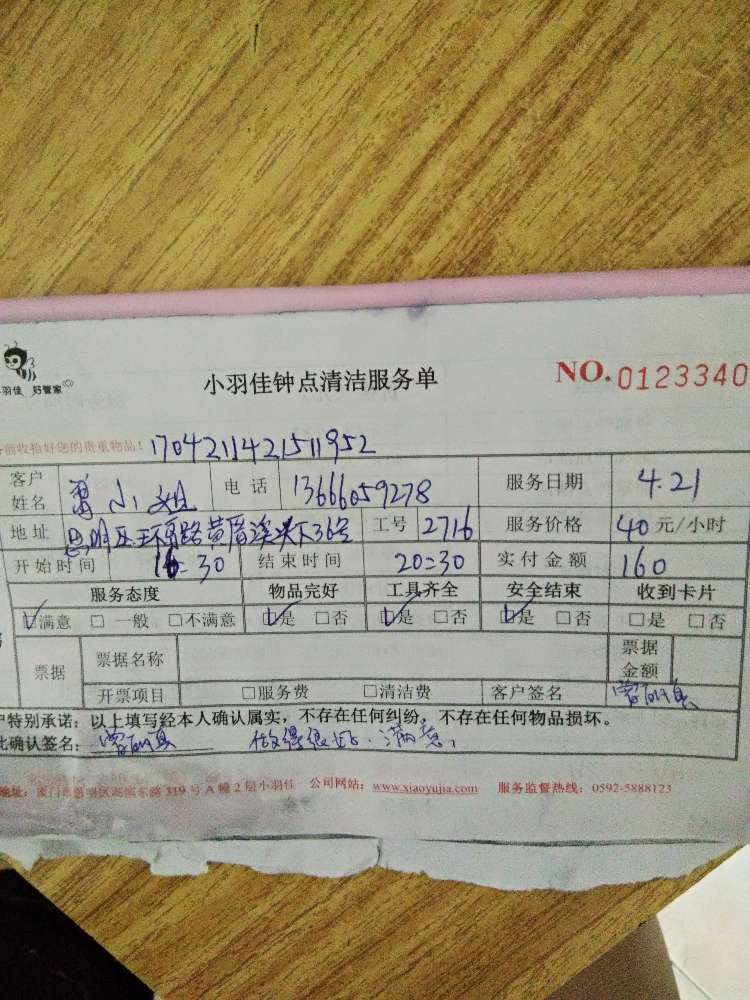 小羽佳 好管家
小羽佳钟点清洁服务单 NO. 0123340
前收拾好您的贵重物品! 1704211421511952
客户姓名 小姐 电话 13666059278 服务日期 4.21
地址 思明区环岛路黄厝溪头下36号 工号 2716 服务价格 40 元/小时
开始时间 16:30 结束时间 20:30 实付金额 160
服务态度 物品完好 工具齐全 安全结束 收到卡片
☑满意 □一般 □不满意 ☑是 □否 ☑是 □否 ☑是 □否 □是 □否
票据 票据名称 票据金额
开票项目 □服务费 □清洁费 客户签名
户特别承诺:以上填写经本人确认属实,不存在任何纠纷,不存在任何物品损坏。
此确认签名: 做得很好,满意,
地址:厦门市思明区湖滨东路 319 号 A 幢 2 层小羽佳 公司网站:www.xiaoyujia.com 服务监督热线:0592-5888123